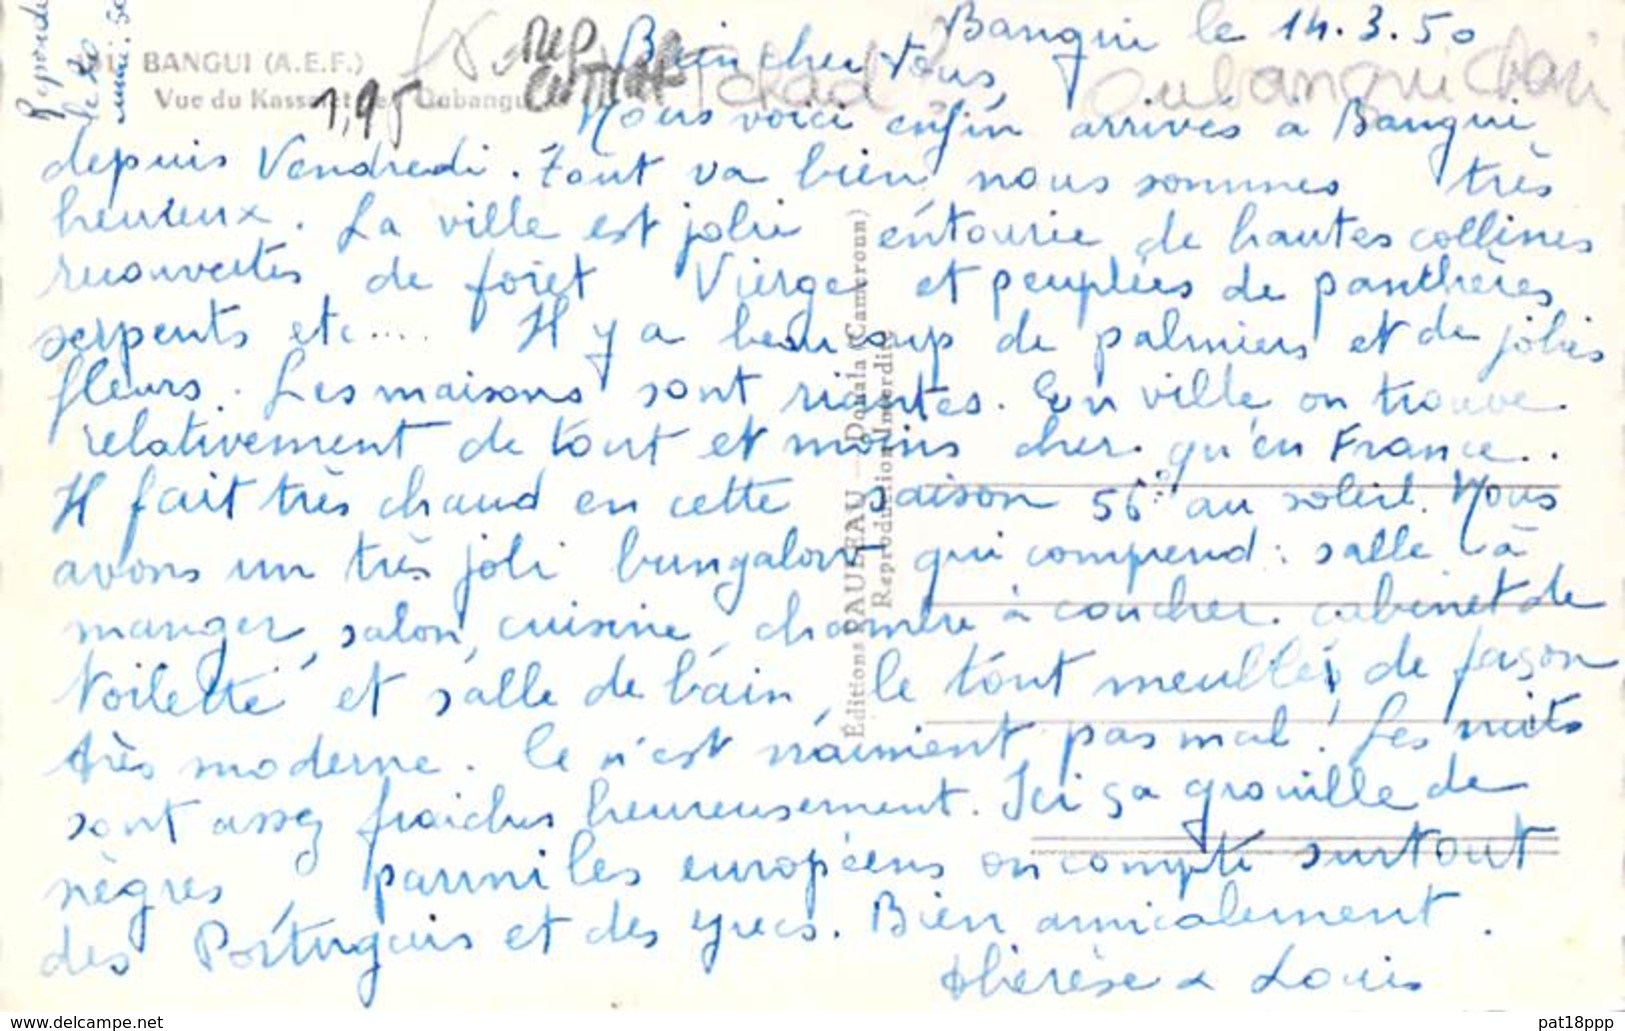 Bangui le 14.3.50
Bien chers tous,
Nous voici enfin arrivés à Bangui
depuis Vendredi. Tout va bien nous sommes très
heureux. La ville est jolie entourée de hautes collines
recouvertes de forêt Vierge et peuplées de panthères
serpents etc.... Il y a beaucoup de palmiers et de jolies
fleurs. Les maisons sont riantes. En ville on trouve
relativement de tout et moins cher qu'en France..
Il fait très chaud en cette saison 56° au soleil. Nous
avons un très joli bungalow qui comprend : salle à
manger, salon, cuisine, chambre à coucher. cabinet de
toilette et salle de bain, le tout meublé de façon
très moderne. Ce n'est vraiment pas mal! Les nuits
sont assez fraiches heureusement. Ici ça grouille de
nègres, parmi les européens on compte surtout
des Portugais et des grecs. Bien amicalement.
Thérèse & Louis
Répondu
le 20
BANGUI (A.E.F.)
Vue du Kassaï et de l'Oubangui
1,95
REP
CENTRAF
Tchad
Oubangui Chari
Éditions PAULEAU — Douala (Cameroun)
Reproduction Interdite
www.delcampe.net
pat18ppp